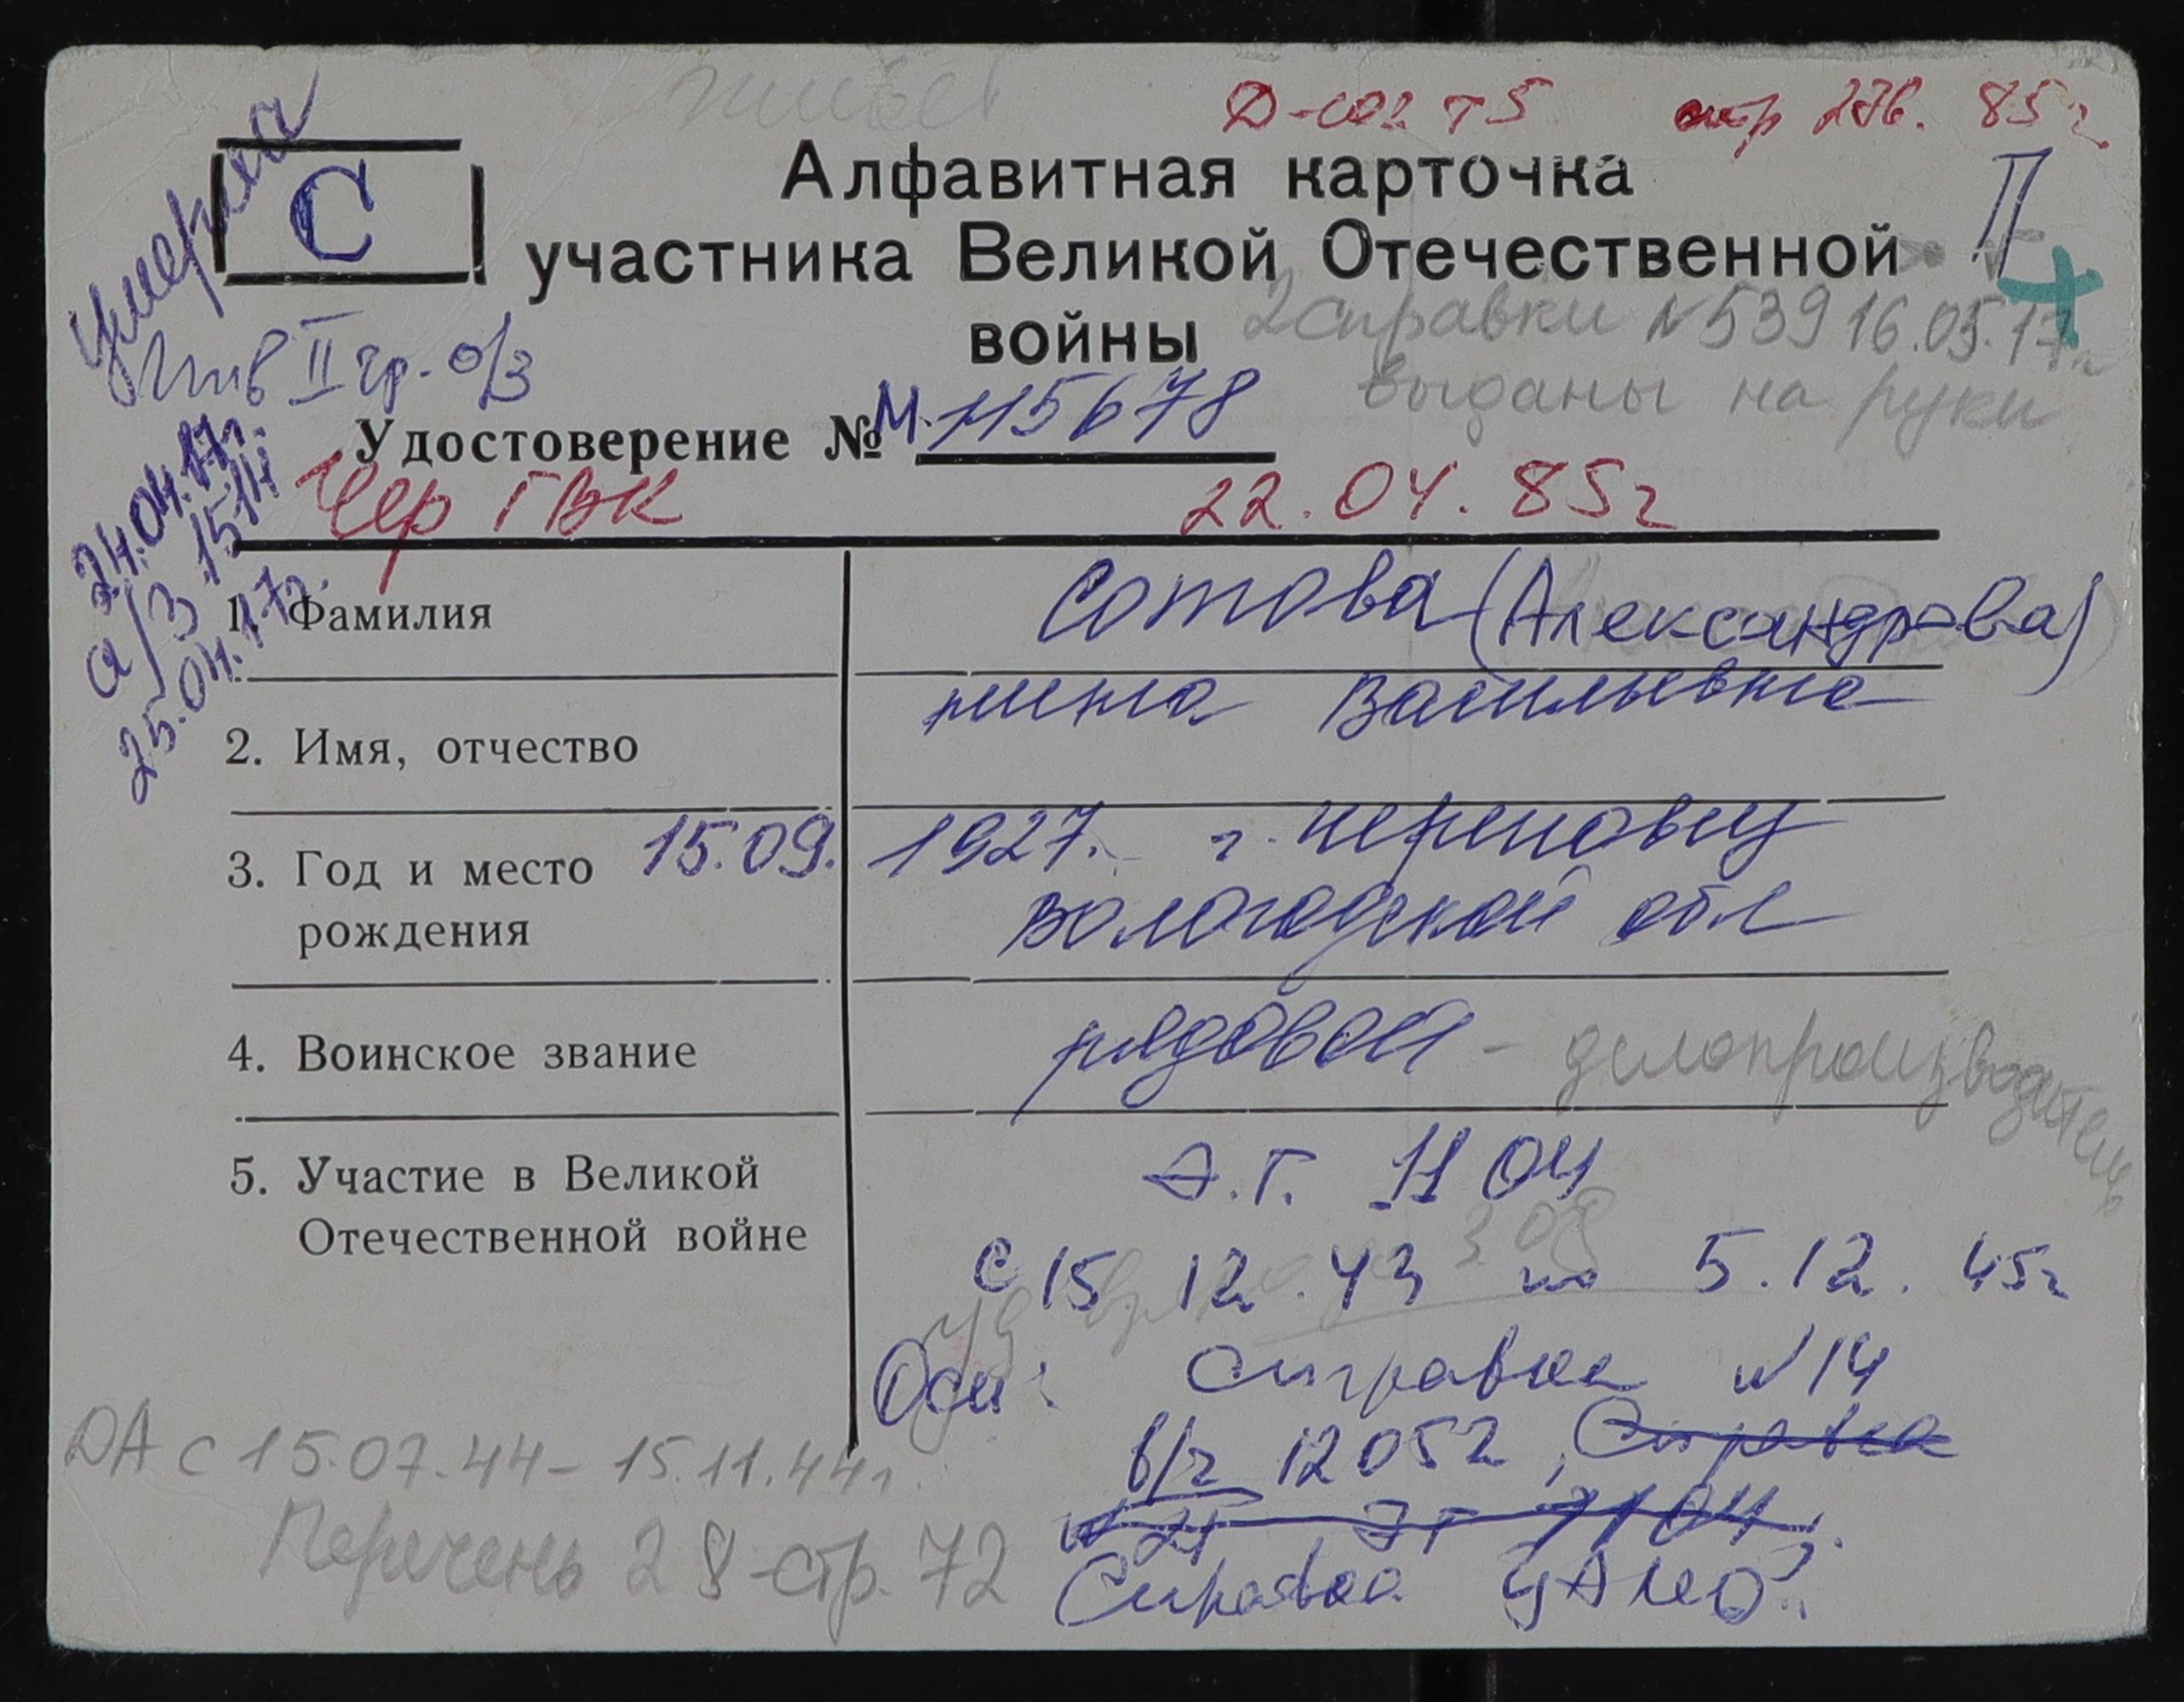 Д-сог т 5 стр 276. 85 г
умерла
С
Алфавитная карточка
участника Великой Отечественной
войны
II
2 справки №539 16.05.17г
выданы на руки
Инв II гр. о/з
Удостоверение № М. 115678
Чер ГВК 22.04.85г
24.04.17г.
а/з 1514
25.04.17г.
1. Фамилия Сотова (Александрова)
2. Имя, отчество нина Васильевна
3. Год и место 15.09. 1927. г. череповец
рождения Вологодской обл
4. Воинское звание рядовой - делопроизводитель
5. Участие в Великой Э.Г. 1104
Отечественной войне
с 15 12.43 по 5.12.45г
Осн: Справка №14
в/ч 12052, Справка
№ 21 ЭГ 1104.
ДА с 15.07.44 - 15.11.44г.
Перечень 28 - стр. 72
Справка ЦАМО